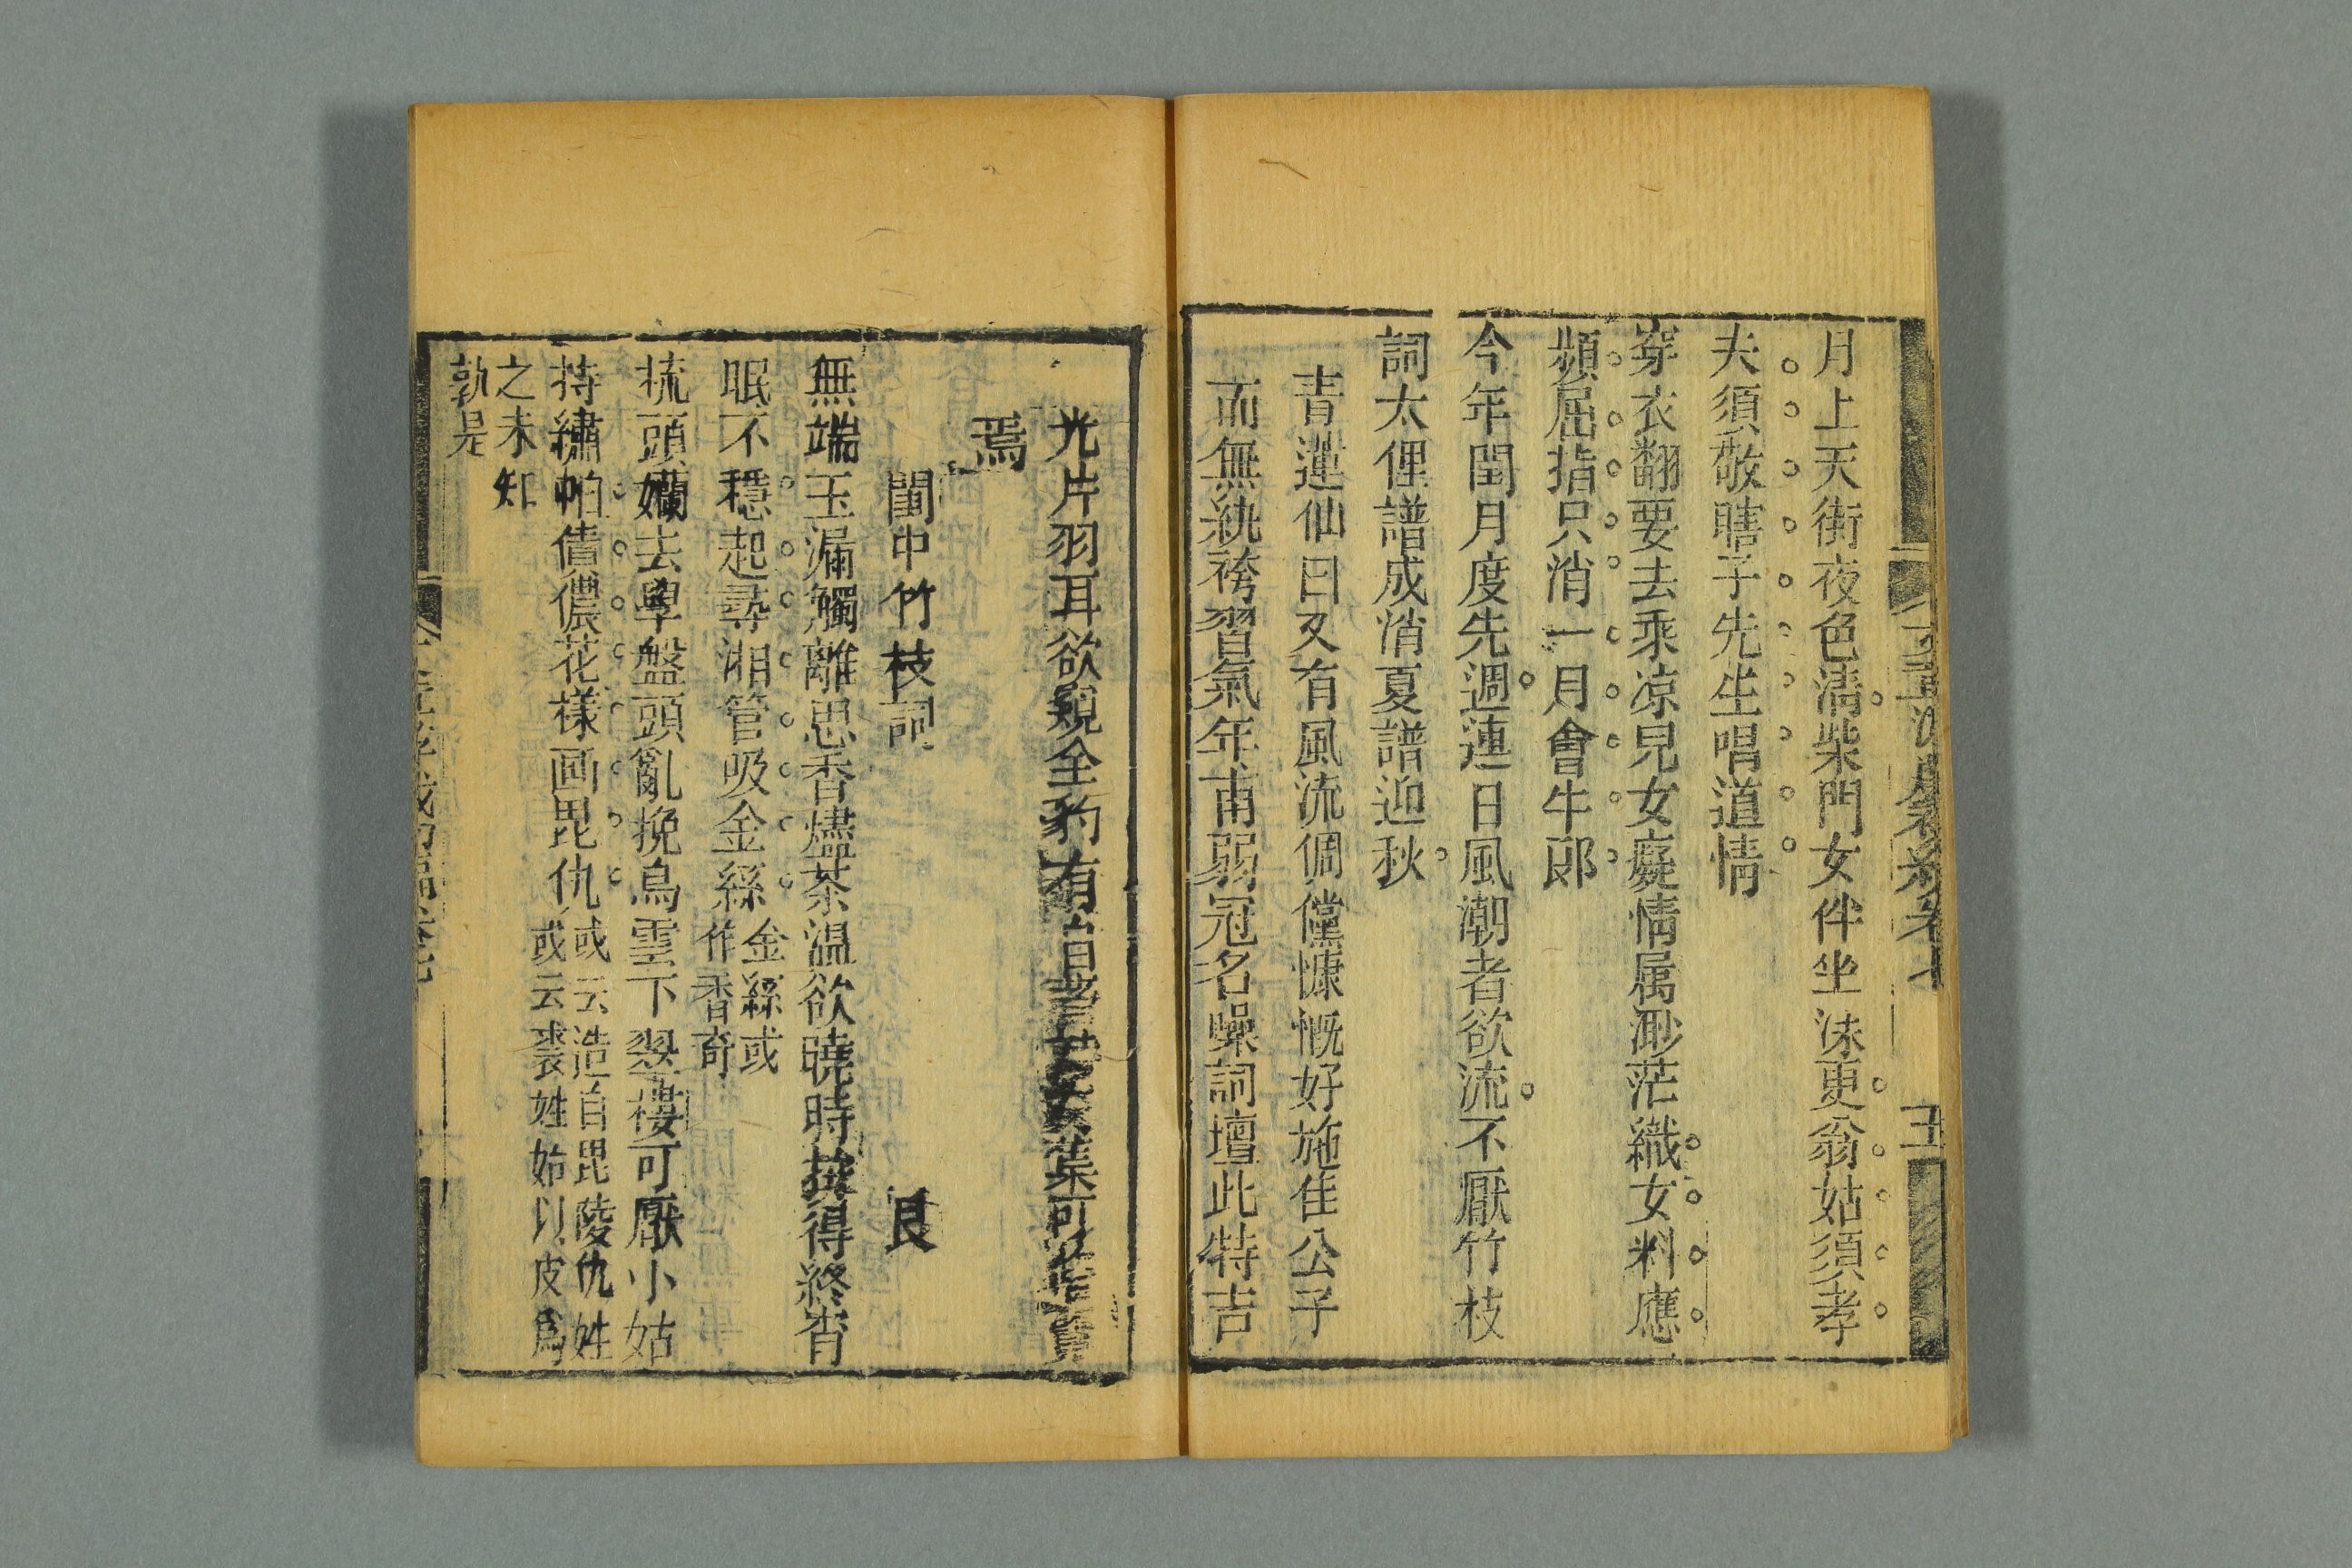 月上天街夜色清柴門女伴坐沬更翁姑須孝
夫須敬瞎子先生唱道情
穿衣翻要去乘凉兒女癡情属渺茫織女料應
頻屈指只消一月會牛郎
今年閏月度先週連日風潮者欲流不厭竹枝
詞太俚譜成消夏譜迎秋
青蓮仙曰又有風流倜儻慷慨好施佳公子
而無紈袴習氣年甫弱冠名噪詞壇此特吉
光片羽耳欲窺全豹有
焉
閨中竹枝詞
艮
無端玉漏觸離思香燼茶温欲曉時挨得終宵
眠不穩起尋湘管吸金絲金絲或
作香奇
梳頭孏去學盤頭亂挽烏雲下翠樓可厭小姑
持繡帕倩儂花樣画毘仇或云造自毘陵仇姓
或云裘姓始以皮爲
之未知
孰是